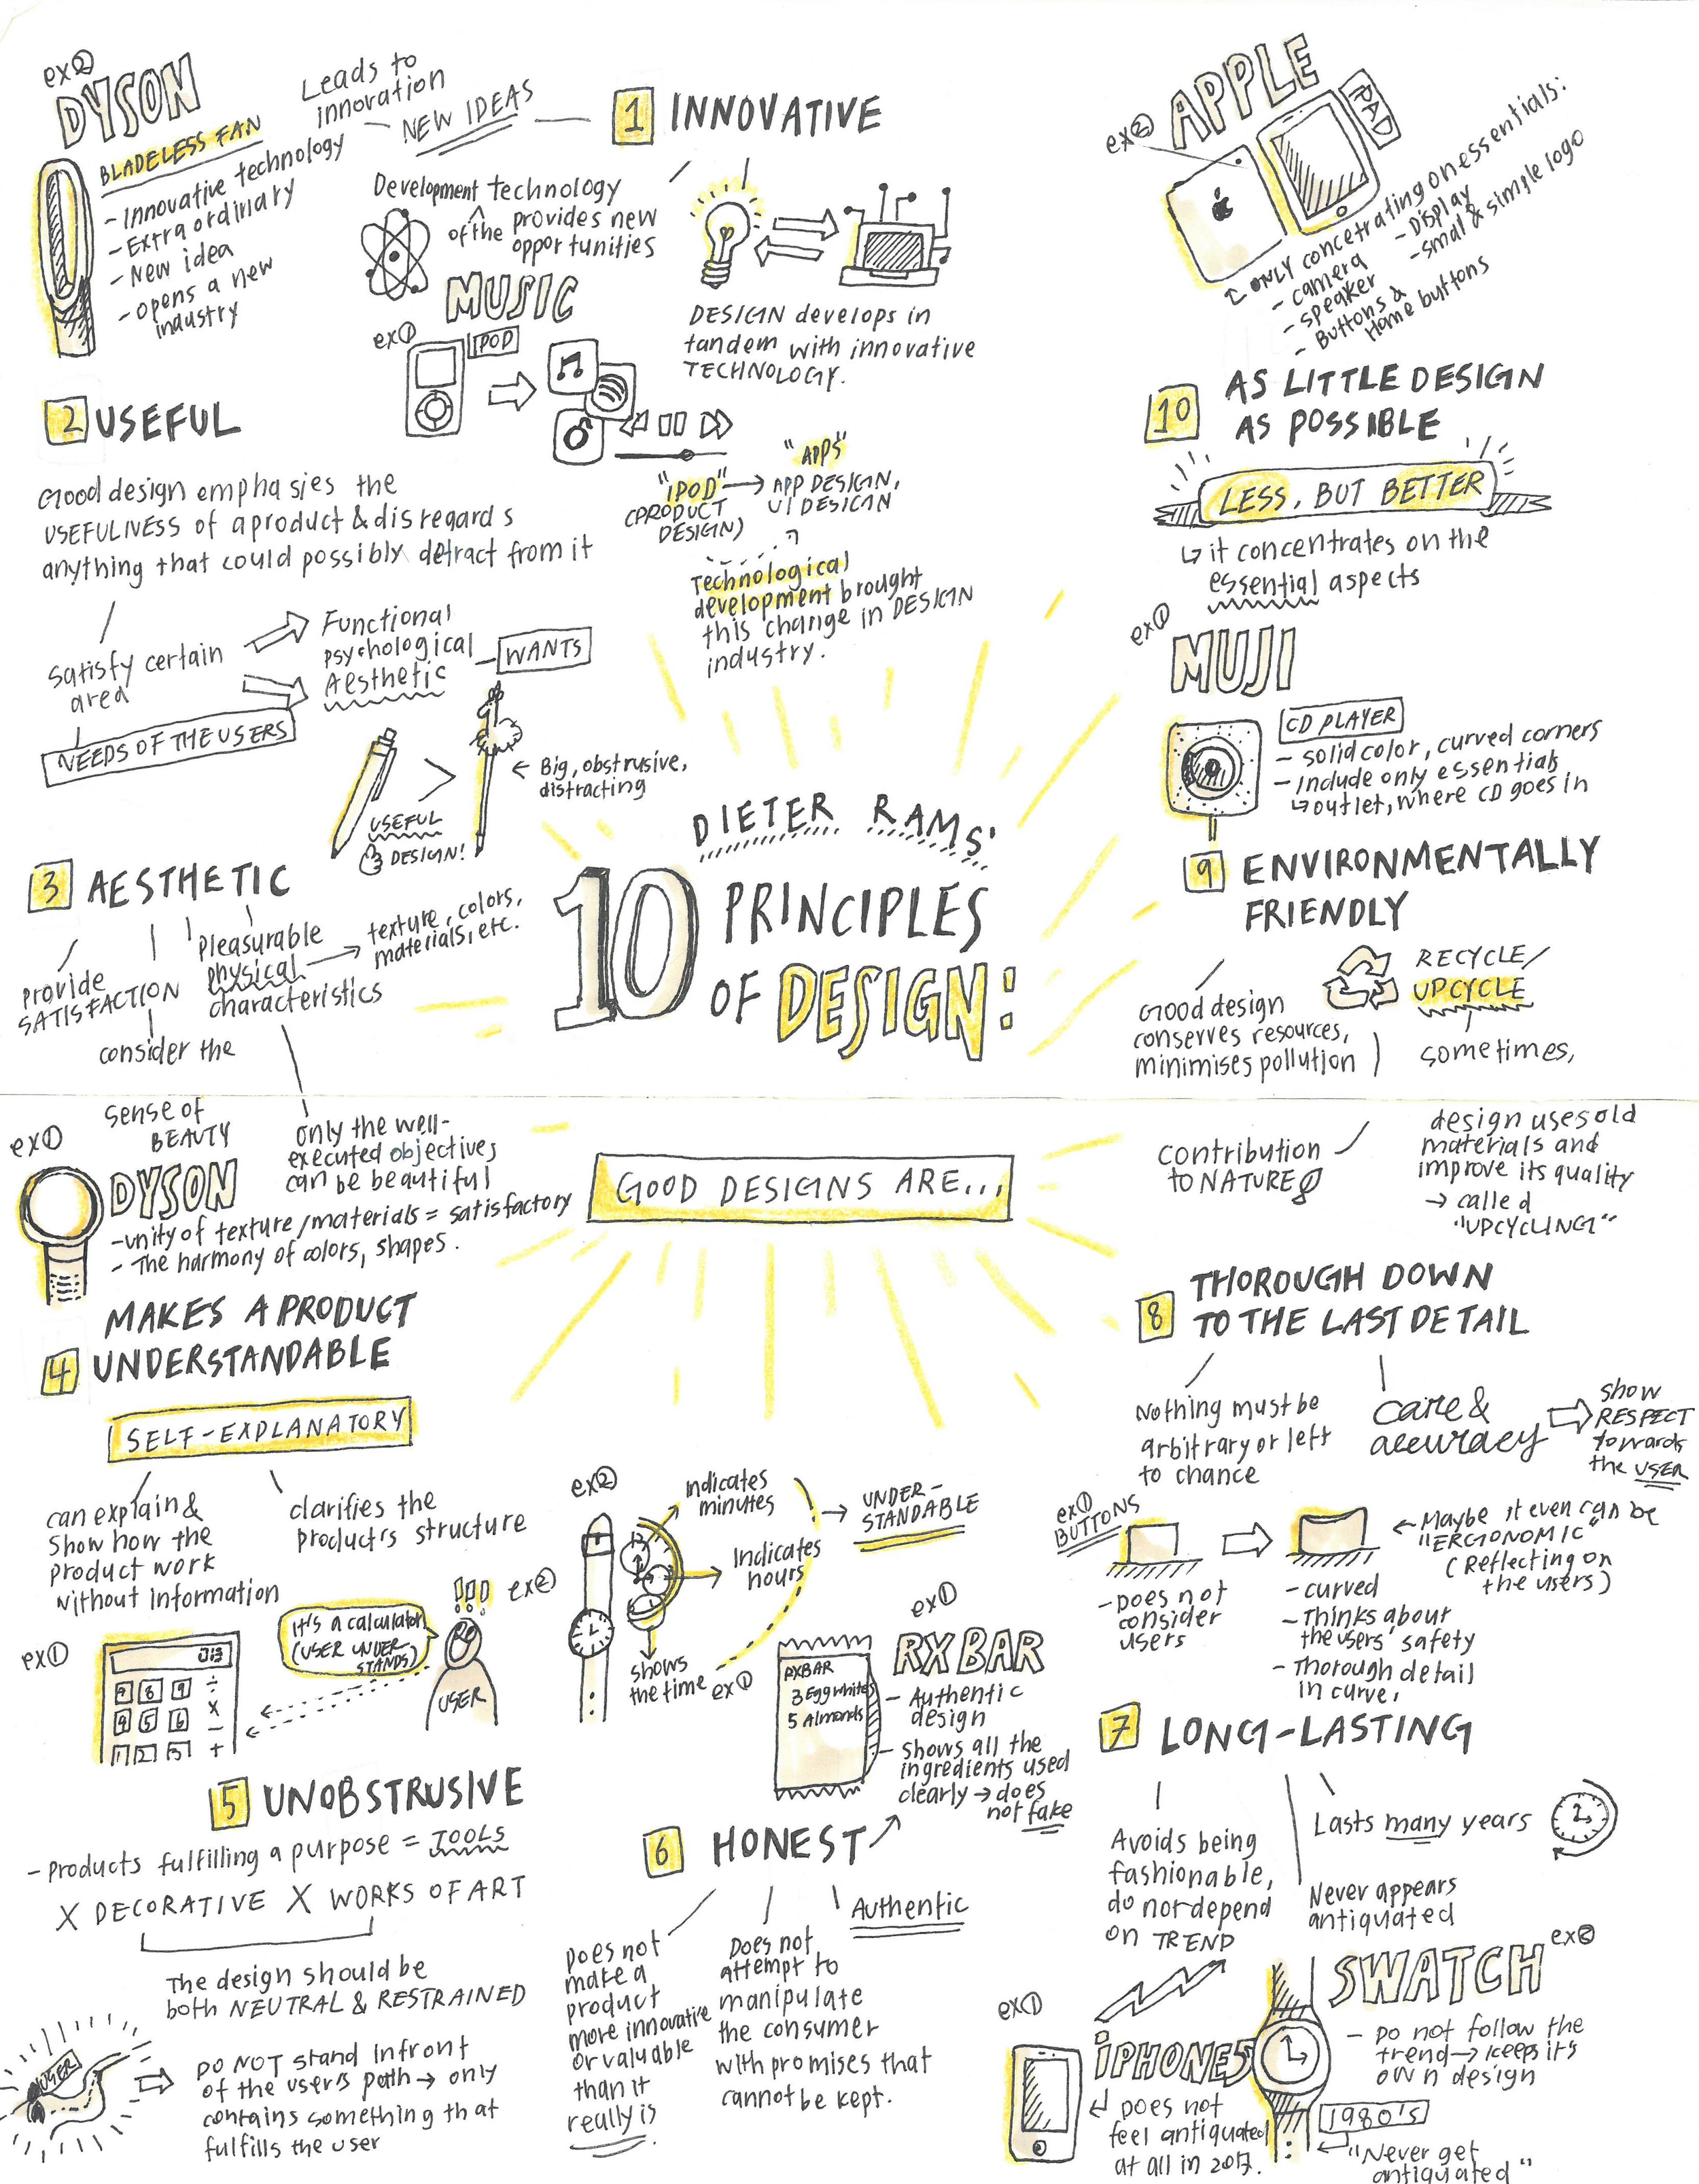 DIETER RAMS'
10 PRINCIPLES
OF DESIGN:
GOOD DESIGNS ARE...
1 INNOVATIVE
NEW IDEAS
Leads to
innovation
Development technology
of the provides new
opportunities
DESIGN develops in
tandem with innovative
TECHNOLOGY.
ex①
MUSIC
IPOD
"IPOD" → "APPS"
(PRODUCT
DESIGN)
APP DESIGN,
UI DESIGN
Technological
development brought
this change in DESIGN
industry.
ex②
DYSON
BLADELESS FAN
- Innovative technology
- Extra ordinary
- New idea
- opens a new
industry
2 USEFUL
Good design emphasies the
USEFULNESS of a product & disregards
anything that could possibly detract from it
Satisfy certain
area
NEEDS OF THE USERS
Functional
psychological
Aesthetic
WANTS
USEFUL
DESIGN!
>
← Big, obstrusive,
distracting
3 AESTHETIC
provide
SATISFACTION
consider the
sense of
BEAUTY
Pleasurable
physical
characteristics
→ texture, colors,
materials, etc.
only the well-
executed objectives
can be beautiful
ex①
DYSON
- unity of texture/materials = satisfactory
- The harmony of colors, shapes.
4 MAKES A PRODUCT
UNDERSTANDABLE
SELF-EXPLANATORY
can explain &
show how the
product work
without information
clarifies the
product's structure
ex①
7 8 9 ÷
5 6 -
1 2 3 +
It's a calculator
(USER UNDER
STANDS)
!!!
USER
ex②
ex②
Indicates
minutes
Indicates
hours
shows
the time
→ UNDER-
STANDABLE
5 UNOBSTRUSIVE
- Products fulfilling a purpose = TOOLS
X DECORATIVE X WORKS OF ART
The design should be
both NEUTRAL & RESTRAINED
USER
DO NOT stand infront
of the user's path → only
contains something that
fulfills the user
6 HONEST
Does not
make a
product
more innovative
or valuable
than it
really is
Does not
attempt to
manipulate
the consumer
with promises that
cannot be kept.
Authentic
ex①
ex①
RX BAR
RXBAR
3 Egg whites
5 Almonds
- Authentic
design
- shows all the
ingredients used
clearly → does
not fake
7 LONG-LASTING
Avoids being
fashionable,
do not depend
on TREND
Never appears
antiquated
Lasts many years
ex①
iPHONE5
Does not
feel antiquated
at all in 2017.
ex②
SWATCH
- Do not follow the
trend → keeps it's
own design
1980's
"Never get
antiquated"
8 THOROUGH DOWN
TO THE LAST DETAIL
Nothing must be
arbitrary or left
to chance
care &
accuracy
show
RESPECT
towards
the USER
ex①
BUTTONS
- Does not
consider
users
- curved
- Thinks about
the users' safety
- Thorough detail
in curve,
← Maybe it even can be
"ERGONOMIC"
(Reflecting on
the users)
9 ENVIRONMENTALLY
FRIENDLY
Good design
conserves resources,
minimises pollution
contribution
to NATURE
RECYCLE/
UPCYCLE
sometimes,
design uses old
materials and
improve its quality
→ called
"UPCYCLING"
10 AS LITTLE DESIGN
AS POSSIBLE
LESS, BUT BETTER
↳ it concentrates on the
essential aspects
ex①
MUJI
CD PLAYER
- solid color, curved corners
- Include only essentials
↳ outlet, where CD goes in
ex②
APPLE
IPAD
ONLY concetrating on essentials:
- camera
- speaker
- Buttons &
Home buttons
- Display
- small & simple logo